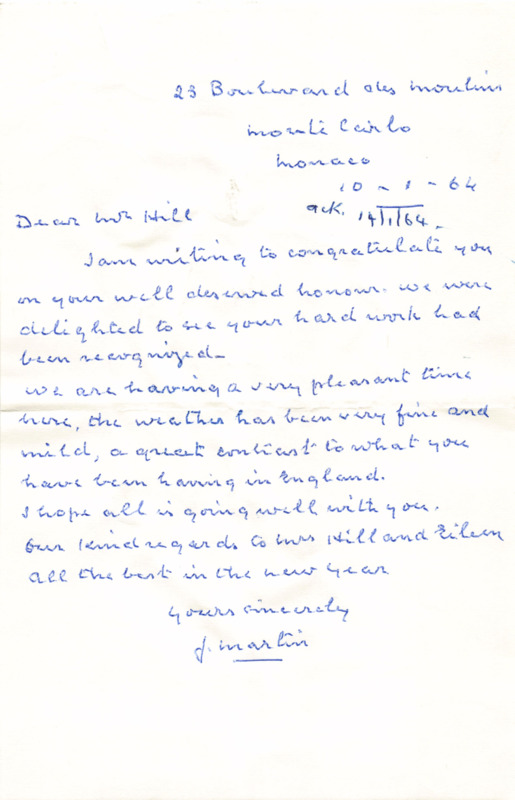 23 Boulevard des moulins
monte Carlo
monaco
10 - 1 - 64
ack. 14/1/64.
Dear Mr Hill
I am writing to congratulate you
on your well deserved honour. we were
delighted to see your hard work had
been recognized -
we are having a very pleasant time
here, the weather has been very fine and
mild, a great contrast to what you
have been having in England.
I hope all is going well with you.
Our kind regards to Mrs Hill and Eileen
all the best in the new year
yours sincerely
J. martin